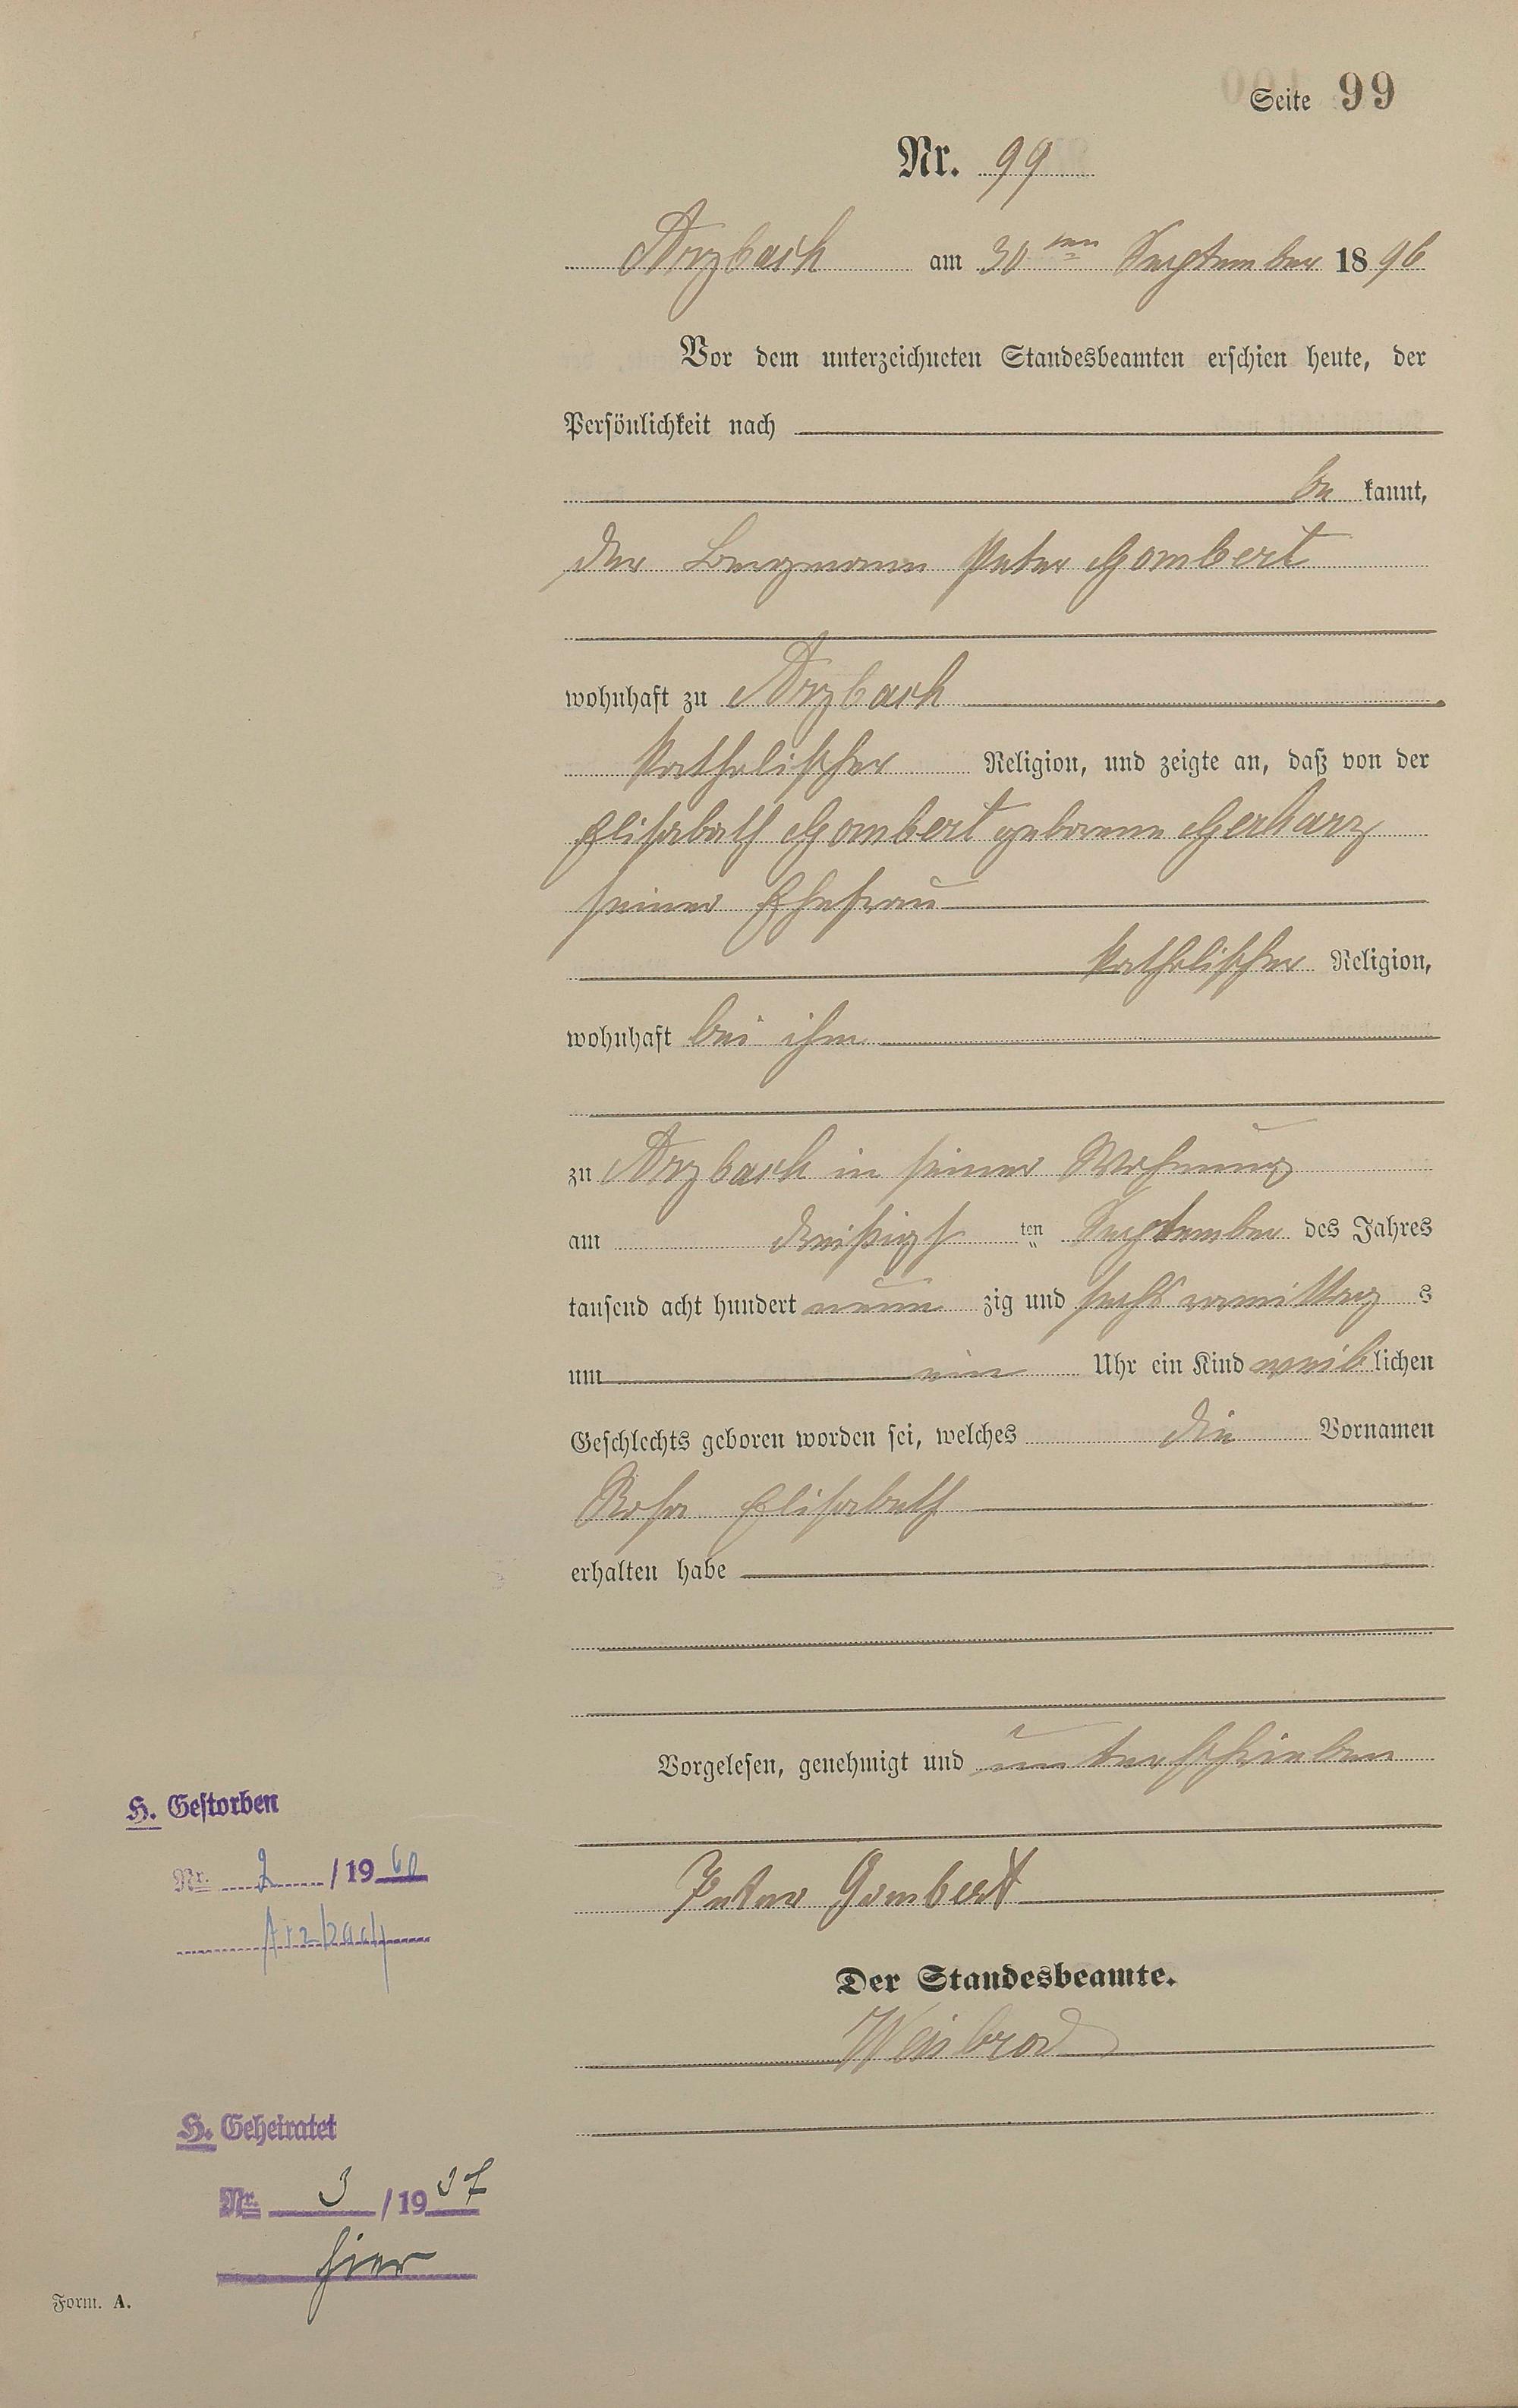 Seite 99
Nr. 99
Arzbach am 30ten September 1896
Vor dem unterzeichneten Standesbeamten erschien heute, der
Persönlichkeit nach
be kannt,
der Bergmann Peter Gombert
wohnhaft zu Arzbach
katholischer Religion, und zeigte an, daß von der
Elisabeth Gombert geborene Gerharz
seiner Ehefrau
katholischer Religion,
wohnhaft bei ihm
zu Arzbach in seiner Wohnung
am dreißigsten September des Jahres
tausend acht hundert neun zig und sechs vormittags
um ein Uhr ein Kind weiblichen
Geschlechts geboren worden sei, welches die Vornamen
Rosa Elisabeth
erhalten habe
Vorgelesen, genehmigt und unterschrieben
Peter Gombert
Der Standesbeamte.
Weisbrod
H. Gestorben
Nr. 2 / 1960
Arzbach
H. Geheiratet
Nr. 3 / 1937
hier
Form. A.